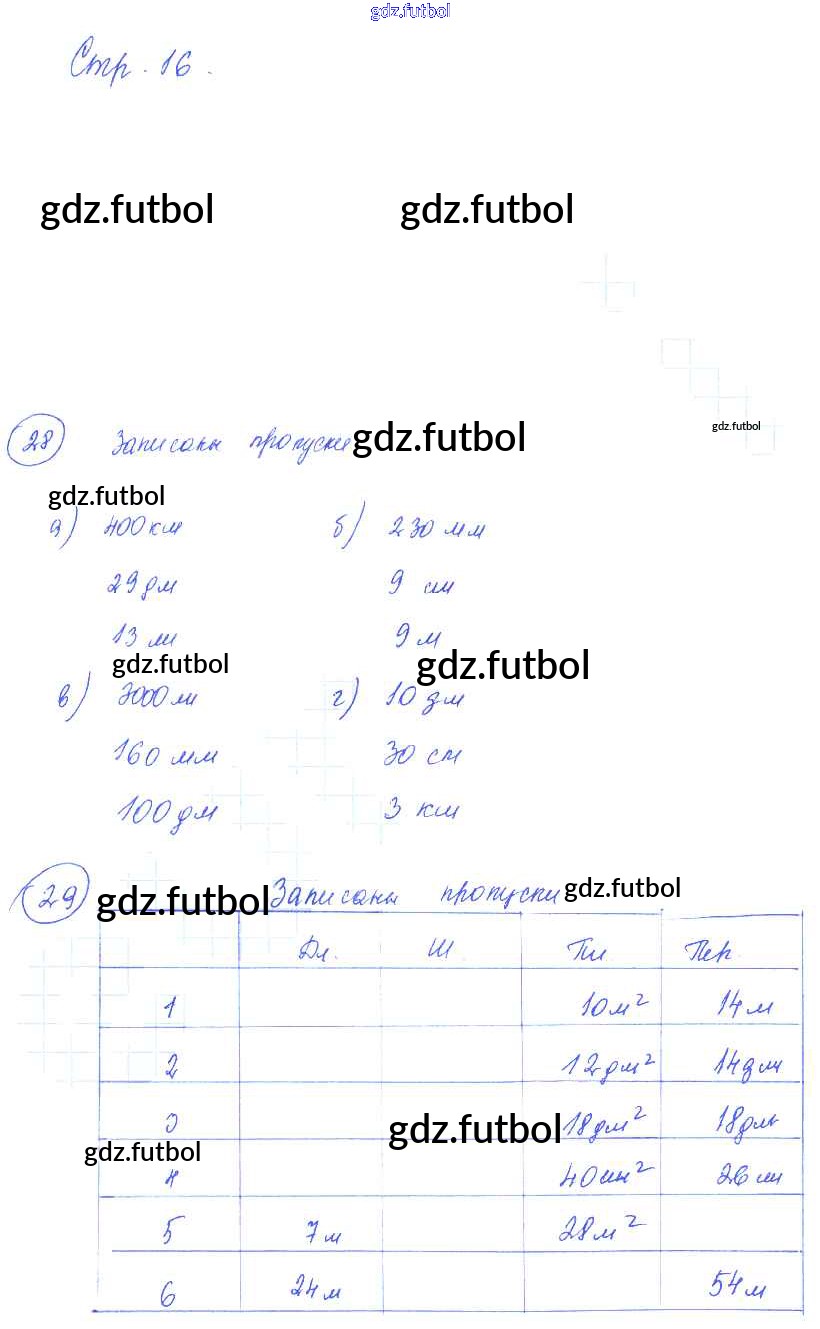 gdz.futbol
Стр. 16.
gdz.futbol gdz.futbol
gdz.futbol
28 Записаны пропуски gdz.futbol
gdz.futbol
а) 400 км б) 230 мм
29 дм 9 см
13 м 9 м
gdz.futbol gdz.futbol
в) 3000 м г) 10 дм
160 мм 30 см
100 дм 3 км
29 gdz.futbol Записаны пропуски gdz.futbol
Дл. Ш Пл. Пер.
1 10 м² 14 м
2 12 дм² 14 дм
3 gdz.futbol 18 дм² 18 дм
gdz.futbol
4 40 см² 26 см
5 7 м 28 м²
6 24 м 54 м